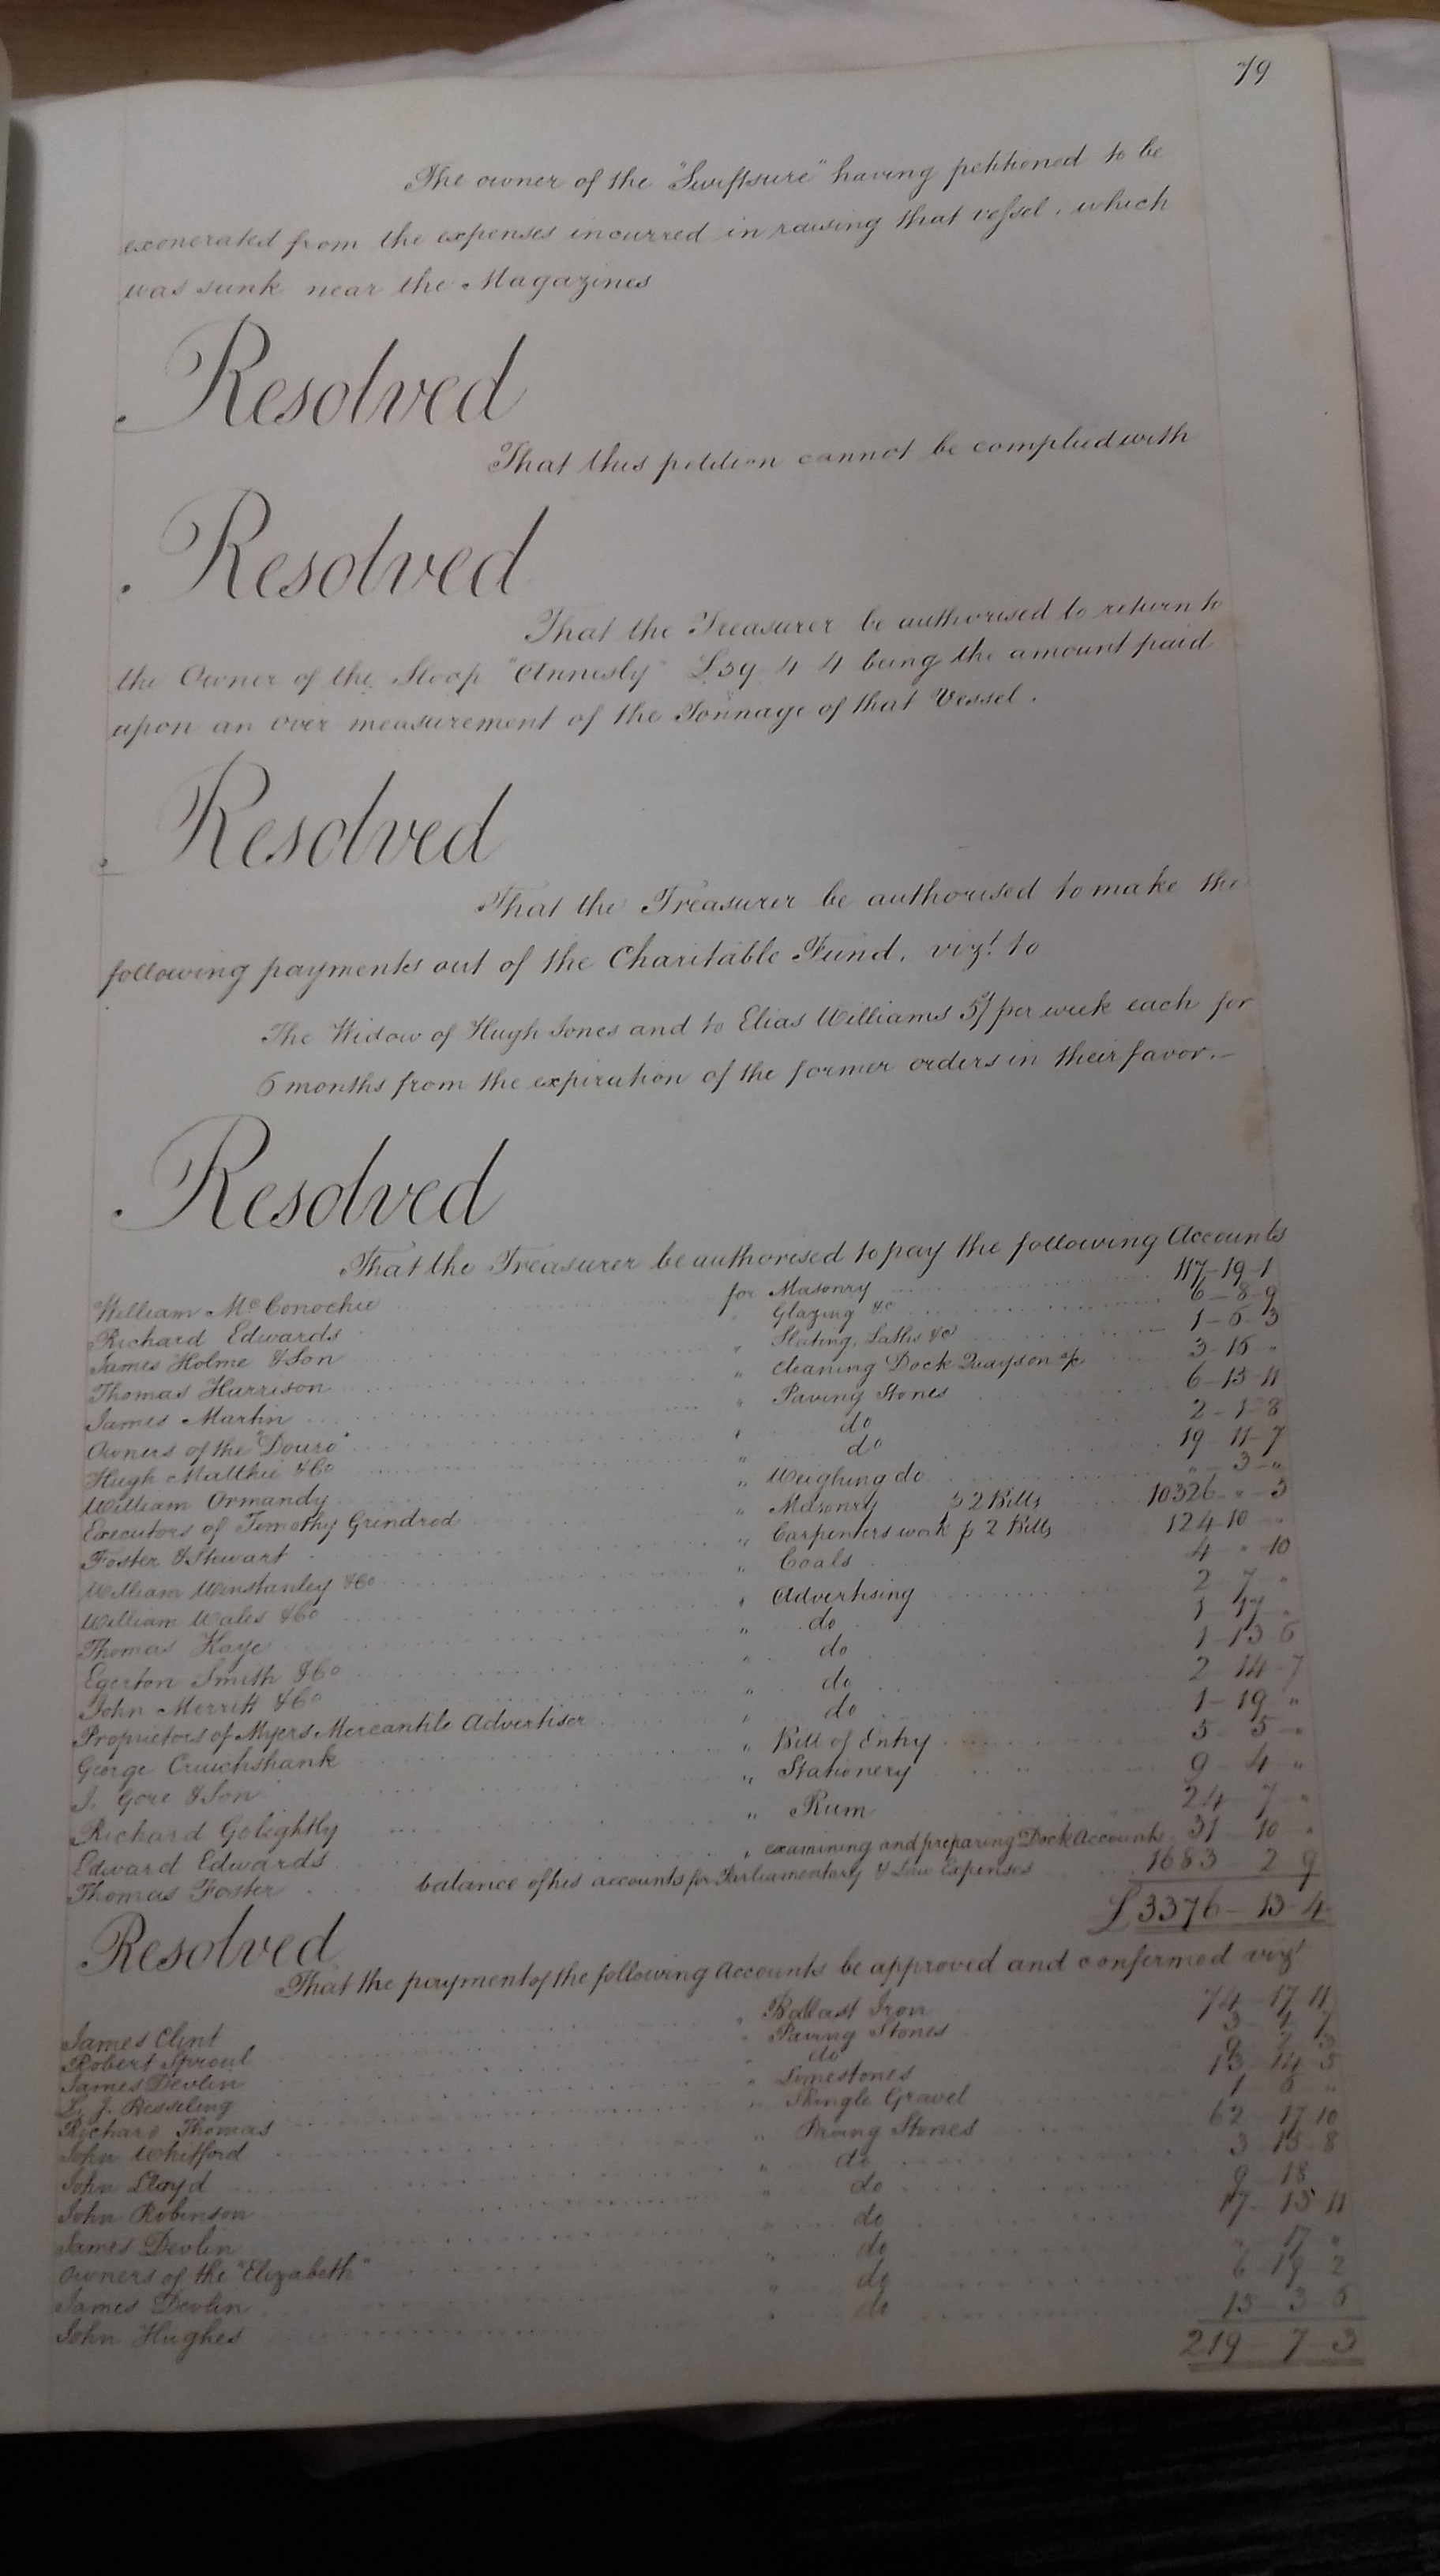 79
The owner of the "Swiftsure" having petitioned to be
exonerated from the expenses incurred in raising that vessel, which
was sunk near the Magazines
Resolved
That this petition cannot be complied with
Resolved
That the Treasurer be authorised to return to
the Owner of the Sloop "Annesly" £59 4 4 being the amount paid
upon an over measurement of the Tonnage of that Vessel.
Resolved
That the Treasurer be authorised to make the
following payments out of the Charitable Fund, vizt. to
The Widow of Hugh Jones and to Elias Williams 5/ per week each for
6 months from the expiration of the former orders in their favor.-
Resolved
That the Treasurer be authorised to pay the following Accounts
William McConochie for Masonry 117-19-1
Richard Edwards " Glazing &c 6-8-9
James Holme & Son " Slating, Laths &c 1-6-3
Thomas Harrison " Cleaning Dock Quays on a/c 3-15-"
James Martin " Paving Stones 6-13-11
Owners of the "Douro" " do 2-1-8
Hugh Matthie & Co " do 19-11-7
William Ormandy " Weighing do "-3-"
Executors of Timothy Grindrod " Masonry p 2 Bills 1032 6-"-3
Foster & Stewart " Carpenters work p 2 Bills 124-10-"
William Winstanley & Co " Coals 4-"-10
William Wales & Co " Advertising 2-7-"
Thomas Kaye " do 1-17-"
Egerton Smith & Co " do 1-13-6
John Merritt & Co " do 2-14-7
Proprietors of Myers Mercantile Advertiser " do 1-19-"
George Cruickshank " Bill of Entry 5-5-"
J. Gore & Son " Stationery 9-4-"
Richard Golightly " Rum 24-7-"
Edward Edwards " examining and preparing Dock Accounts 31-10-"
Thomas Foster balance of his accounts for Parliamentary & Law Expenses 1683-2-9
£3376-13-4
Resolved
That the payment of the following Accounts be approved and confirmed vizt
James Clint " Ballast Iron 74-17-11
Robert Sproul " Paving Stones 3-4-7
James Devlin " do 9-2-3
J. Hesseling " Limestones 13-14-5
Richard Thomas " Shingle Gravel 1-6-"
John Whifford " Paving Stones 62-17-10
John Lloyd " do 3-13-8
John Robinson " do 9-18
James Devlin " do 17-15-11
Owners of the "Elizabeth" " do "-17-"
James Devlin " do 6-19-2
John Hughes " do 15-3-6
219-7-3